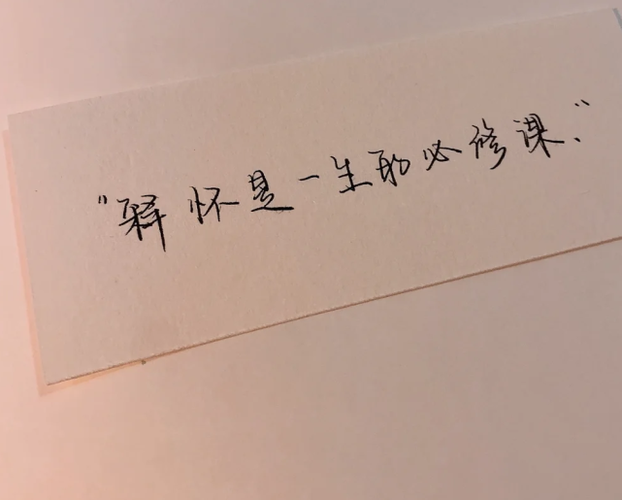 “释怀是一生的必修课.”